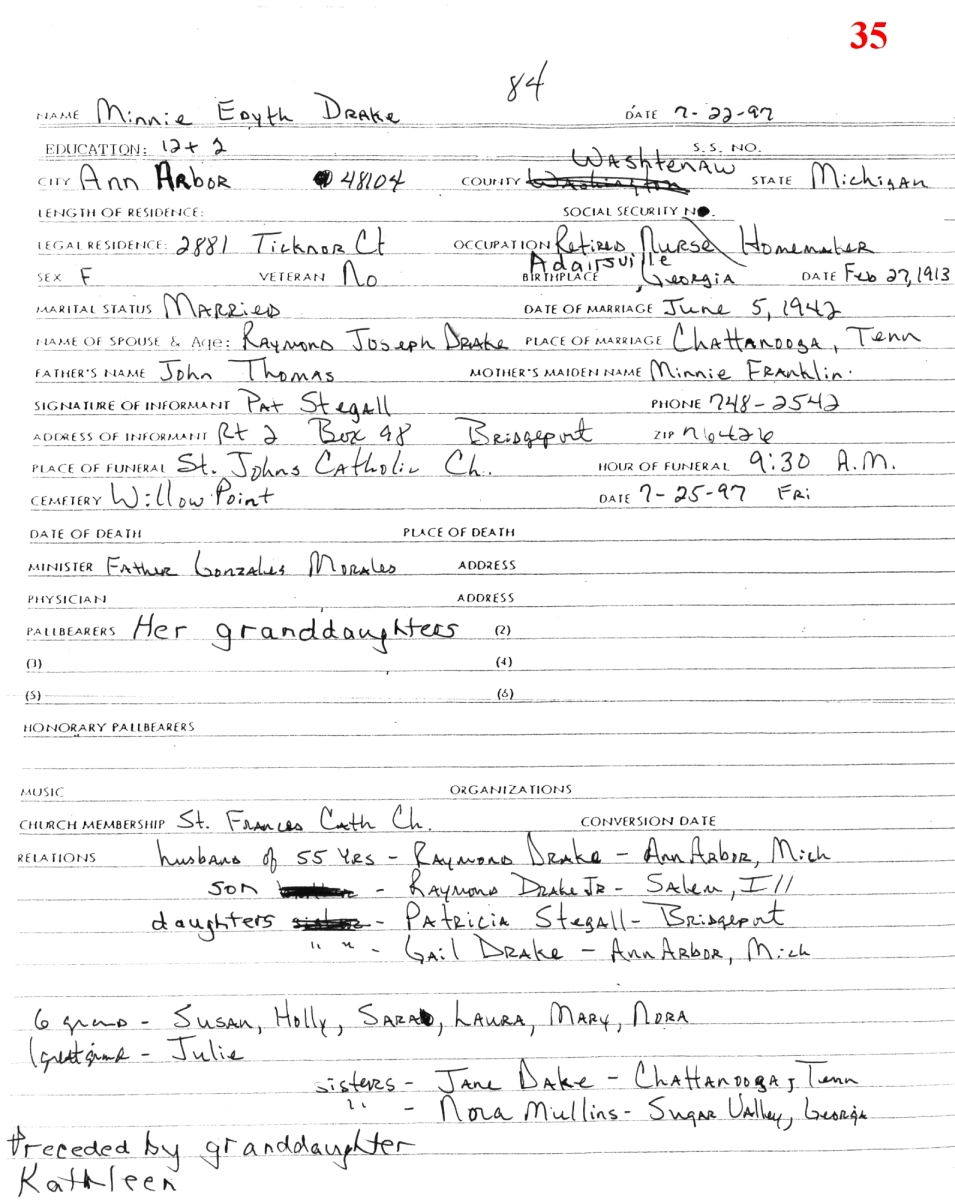 35
84
NAME Minnie Edyth Drake DATE 7-22-97
EDUCATION: 12+2 S.S. NO.
CITY Ann Arbor 48104 COUNTY Washtenaw Washington STATE Michigan
LENGTH OF RESIDENCE: SOCIAL SECURITY NO.
LEGAL RESIDENCE: 2881 Ticknor Ct OCCUPATION Retired Nurse Homemaker
SEX F VETERAN No BIRTHPLACE Adairsville, Georgia DATE Feb 27, 1913
MARITAL STATUS Married DATE OF MARRIAGE June 5, 1942
NAME OF SPOUSE & Age: Raymond Joseph Drake PLACE OF MARRIAGE Chattanooga, Tenn
FATHER'S NAME John Thomas MOTHER'S MAIDEN NAME Minnie Franklin
SIGNATURE OF INFORMANT Pat Stegall PHONE 748-2542
ADDRESS OF INFORMANT Rt 2 Box 98 Bridgeport ZIP 76426
PLACE OF FUNERAL St. Johns Catholic Ch. HOUR OF FUNERAL 9:30 A.M.
CEMETERY Willow Point DATE 7-25-97 Fri
DATE OF DEATH PLACE OF DEATH
MINISTER Father Gonzales Morales ADDRESS
PHYSICIAN ADDRESS
PALLBEARERS Her granddaughters (2)
(3) (4)
(5) (6)
HONORARY PALLBEARERS
MUSIC ORGANIZATIONS
CHURCH MEMBERSHIP St. Frances Cath Ch. CONVERSION DATE
RELATIONS husband of 55 yrs - Raymond Drake - Ann Arbor, Mich
son - Raymond Drake Jr - Salem, Ill
daughters sister - Patricia Stegall - Bridgeport
" " - Gail Drake - Ann Arbor, Mich
6 grand - Susan, Holly, Sara, Laura, Mary, Nora
1 great grand - Julie
sisters - Jane Dake - Chattanooga, Tenn
" - Nora Mullins - Sugar Valley, Georgia
Preceded by granddaughter
Kathleen